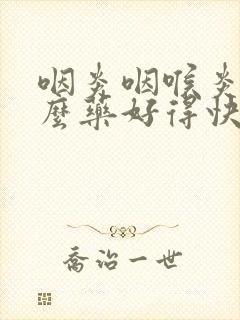 咽炎咽喉炎
麼藥好得快
喬治一世